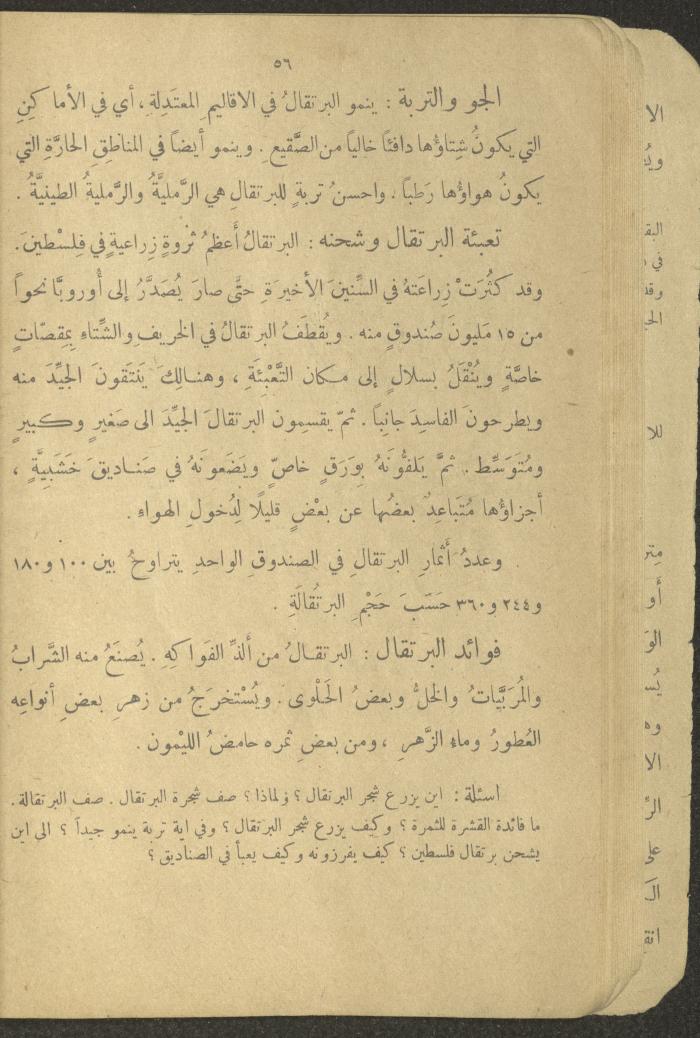 ٥٦
الجو والتربة : ينمو البرتقالُ في الاقاليمِ المعتَدِلةِ ، أي في الأماكِنِ
التي يكونُ شِتاؤُها دافئاً خالياً من الصَّقيع . وينمو أيضاً في المناطقِ الحارَّةِ التي
يكونُ هواؤُها رَطباً . واحسنُ تربةٍ للبرتقالِ هي الرَّمليَّةُ والرَّمليةُ الطينيَّةُ .
تعبئة البرتقال وشحنه : البرتقالُ أَعظمُ ثروةٍ زِراعيةٍ في فِلِسْطينَ .
وقد كثُرَتْ زِراعَتهُ في السِّنينَ الأخيرَةِ حتَّى صارَ يُصَدَّرُ إلى أُوروبَّا نحواً
من ١٥ مَليونَ صُندوقٍ منه . ويُقطَفُ البرتقالُ في الخريفِ والشِّتاءِ بِمِقصّاتٍ
خاصَّةٍ ويُنْقَلُ بسلالٍ إلى مكان التَّعْبِئَةِ ، وهنالِكَ يَنتَقونَ الجيِّدَ منه
ويطرحونَ الفاسِدَ جانِباً . ثمّ يقسِمون البرتقالَ الجيِّدَ الى صَغيرٍ وكبيرٍ
ومُتَوَسِّط . ثمَّ يَلفُّونَهُ بِوَرَقٍ خاصٍّ ويَضَعونَهُ في صَناديقَ خَشَبِيَّةٍ ،
أجزاؤُها مُتَباعِدٌ بعضُها عن بعْضٍ قليلًا لِدُخولِ الهواءِ .
وعددُ أَثمارِ البرتقالِ في الصندوقِ الواحدِ يتراوحُ بين ١٠٠ و ١٨٠
و ٢٤٤ و ٣٦٠ حَسَبَ حَجْمِ البرتُقالَةِ .
فوائد البرتقال : البرتقالُ من أَلذِّ الفَواكِهِ . يُصنَعُ منه الشَّرابُ
والمُرَبَّياتُ والخلُّ وبعضُ الحَلْوى . ويُسْتخرَجُ من زهرِ بعضِ أنواعِه
العُطورُ وماءِ الزَّهرِ ، ومن بعضِ ثمره حامضُ الليْمون .
اسئلة : اين يزرع شجر البرتقال ؟ ولماذا ؟ صف شجرة البرتقال . صف البرتقالة .
ما فائدة القشرة للثمرة ؟ وكيف يزرع شجر البرتقال ؟ وفي اية تربة ينمو جيداً ؟ الى اين
يشحن برتقال فلسطين ؟ كيف يفرزونه وكيف يعبأ في الصناديق ؟